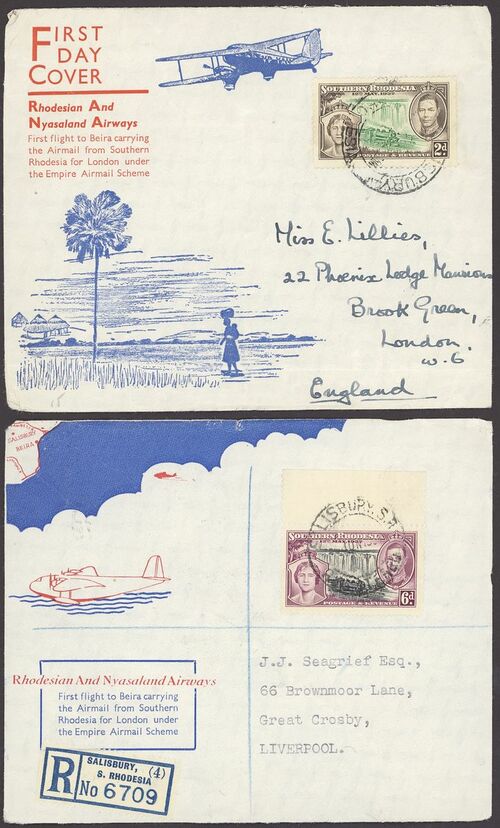 FIRST
DAY
COVER
Rhodesian And
Nyasaland Airways
First flight to Beira carrying
the Airmail from Southern
Rhodesia for London under
the Empire Airmail Scheme
SOUTHERN RHODESIA
12TH MAY, 1937
POSTAGE & REVENUE
2d.
Miss E. Lillies,
22 Phoenix Lodge Mansions
Brook Green,
London.
W. 6
England
SALISBURY
BEIRA
SALISBURY, S.R.
SOUTHERN RHODESIA
12TH MAY, 1937
POSTAGE & REVENUE
6d.
Rhodesian And Nyasaland Airways
First flight to Beira carrying
the Airmail from Southern
Rhodesia for London under
the Empire Airmail Scheme
J.J. Seagrief Esq.,
66 Brownmoor Lane,
Great Crosby,
LIVERPOOL.
R
SALISBURY, (4)
S. RHODESIA
No 6709